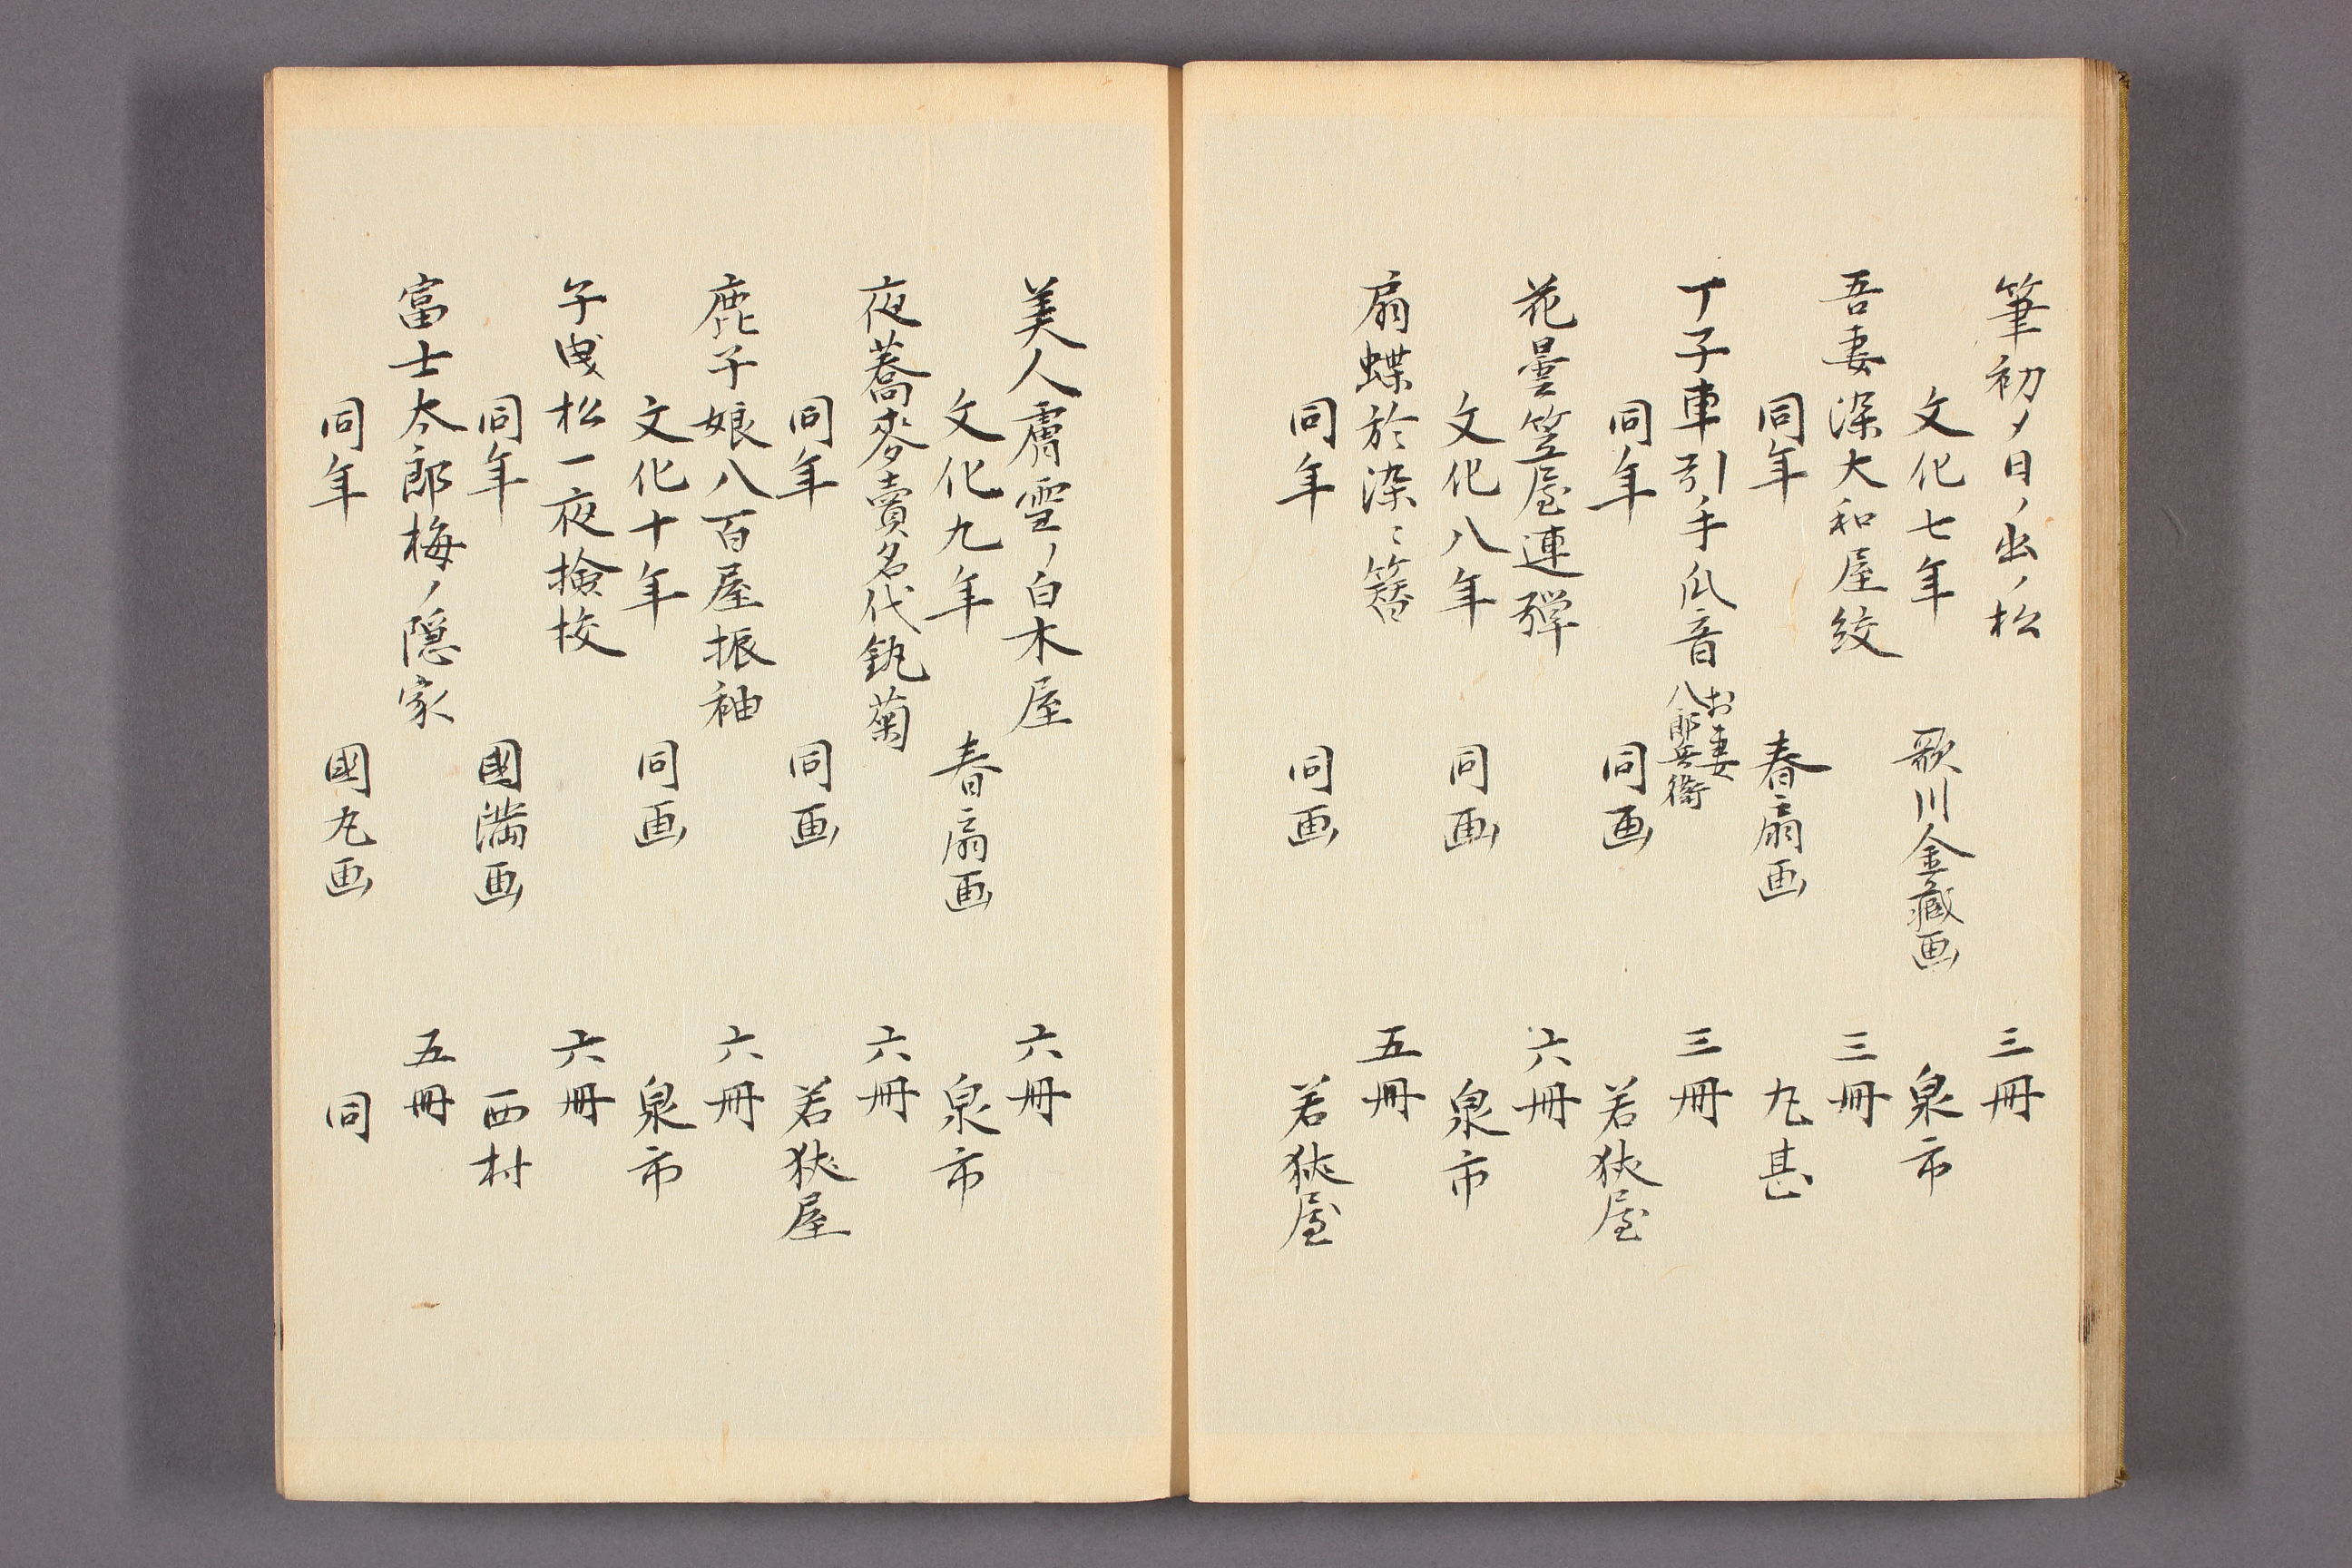 筆初メ日ノ出ノ松　三冊
文化七年　歌川金蔵画　泉市
吾妻深大和屋紋　三冊
同年　春扇画　丸甚
丁子車引手爪音　お妻八郎兵衛　三冊
同年　同画　若狭屋
花曇笠屋連弾　六冊
文化八年　同画　泉市
扇蝶於染ミ簪　五冊
同年　同画　若狭屋
美人膚雪ノ白木屋　六冊
文化九年　春扇画　泉市
夜蕎麥賣名代釻菊　六冊
同年　同画　若狭屋
鹿子娘八百屋振袖　六冊
文化十年　同画　泉市
子曳松一夜撿挍　六冊
同年　國満画　西村
富士太郎梅ノ隠家　五冊
同年　國丸画　同